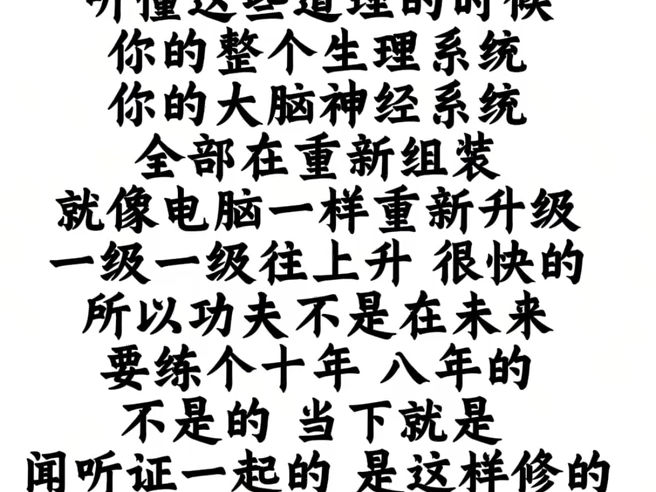 听懂这些道理的时候
你的整个生理系统
你的大脑神经系统
全部在重新组装
就像电脑一样重新升级
一级一级往上升 很快的
所以功夫不是在未来
要练个十年 八年的
不是的 当下就是
闻听证一起的 是这样修的